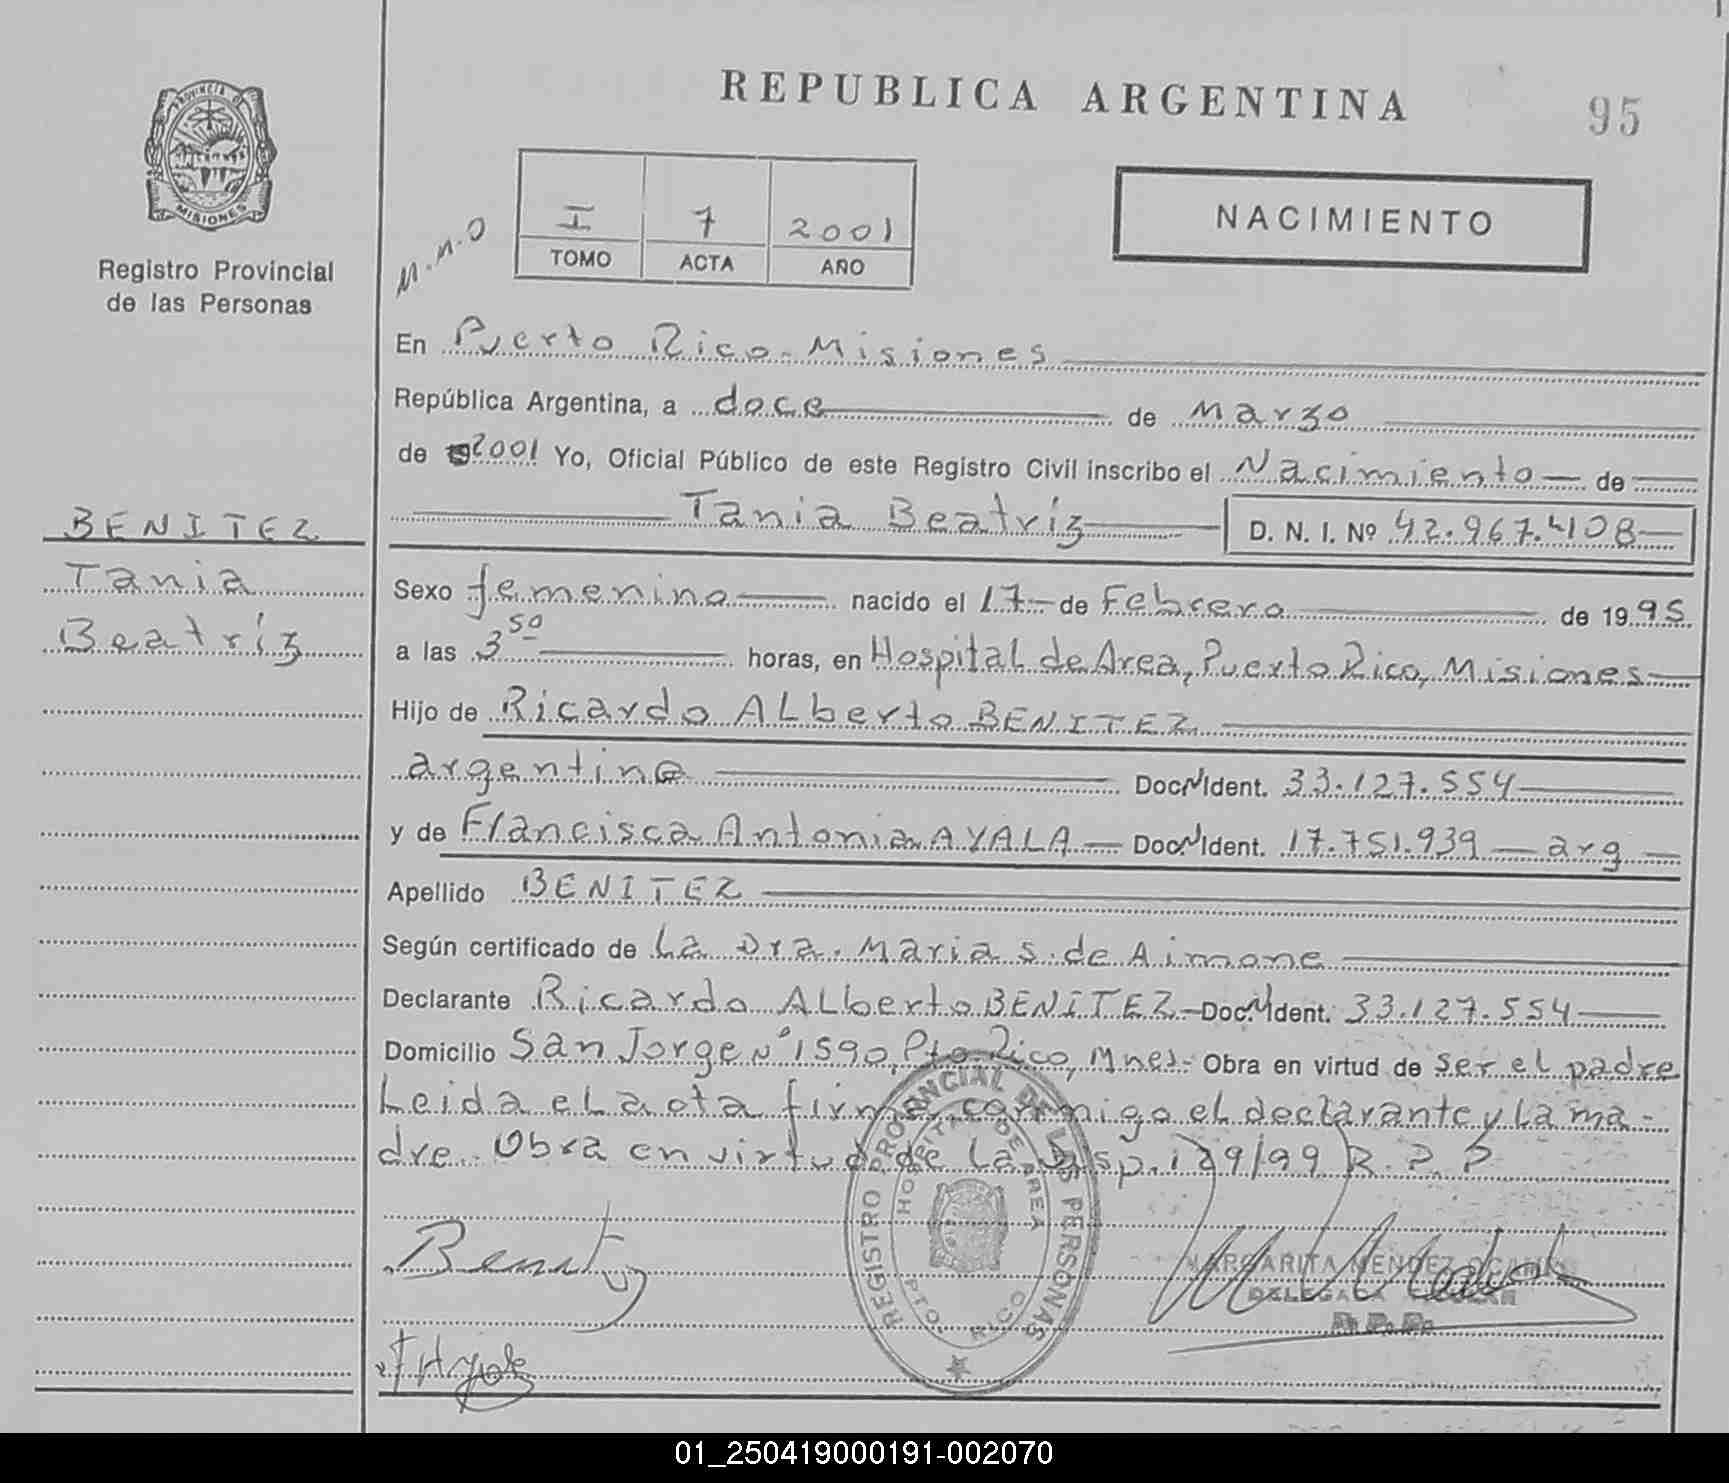 REPUBLICA ARGENTINA
95
PROVINCIA DE
MISIONES
Registro Provincial
de las Personas
M.M.O
I 7 2001
TOMO ACTA AÑO
NACIMIENTO
En Puerto Rico - Misiones
República Argentina, a doce de Marzo
de 2001 Yo, Oficial Público de este Registro Civil inscribo el Nacimiento de
Tania Beatríz D. N. I. Nº 42.967.408
BENITEZ
Tania
Beatríz
Sexo femenino nacido el 17 de Febrero de 1995
a las 3 50 horas, en Hospital de Area, Puerto Rico, Misiones
Hijo de Ricardo ALberto BENITEZ
argentino Doc. Ident. 33.127.554
y de Francisca Antonia AYALA Doc. Ident. 17.751.939 arg
Apellido BENITEZ
Según certificado de La Dra. Maria S. de Aimone
Declarante Ricardo ALberto BENITEZ Doc. Ident. 33.127.554
Domicilio San Jorge Nº 1590, Pto Rico, Mnes. Obra en virtud de ser el padre
Leida el acta firma conmigo el declarante y La ma-
dre. Obra en virtud de La Disp. 129/99 R.P.P
REGISTRO PROVINCIAL DE LAS PERSONAS
HOSPITAL DE AREA
PTO. RICO
Benitez
MARGARITA MENDEZ
DELEGADA TITULAR
R. P. P.
01_250419000191-002070